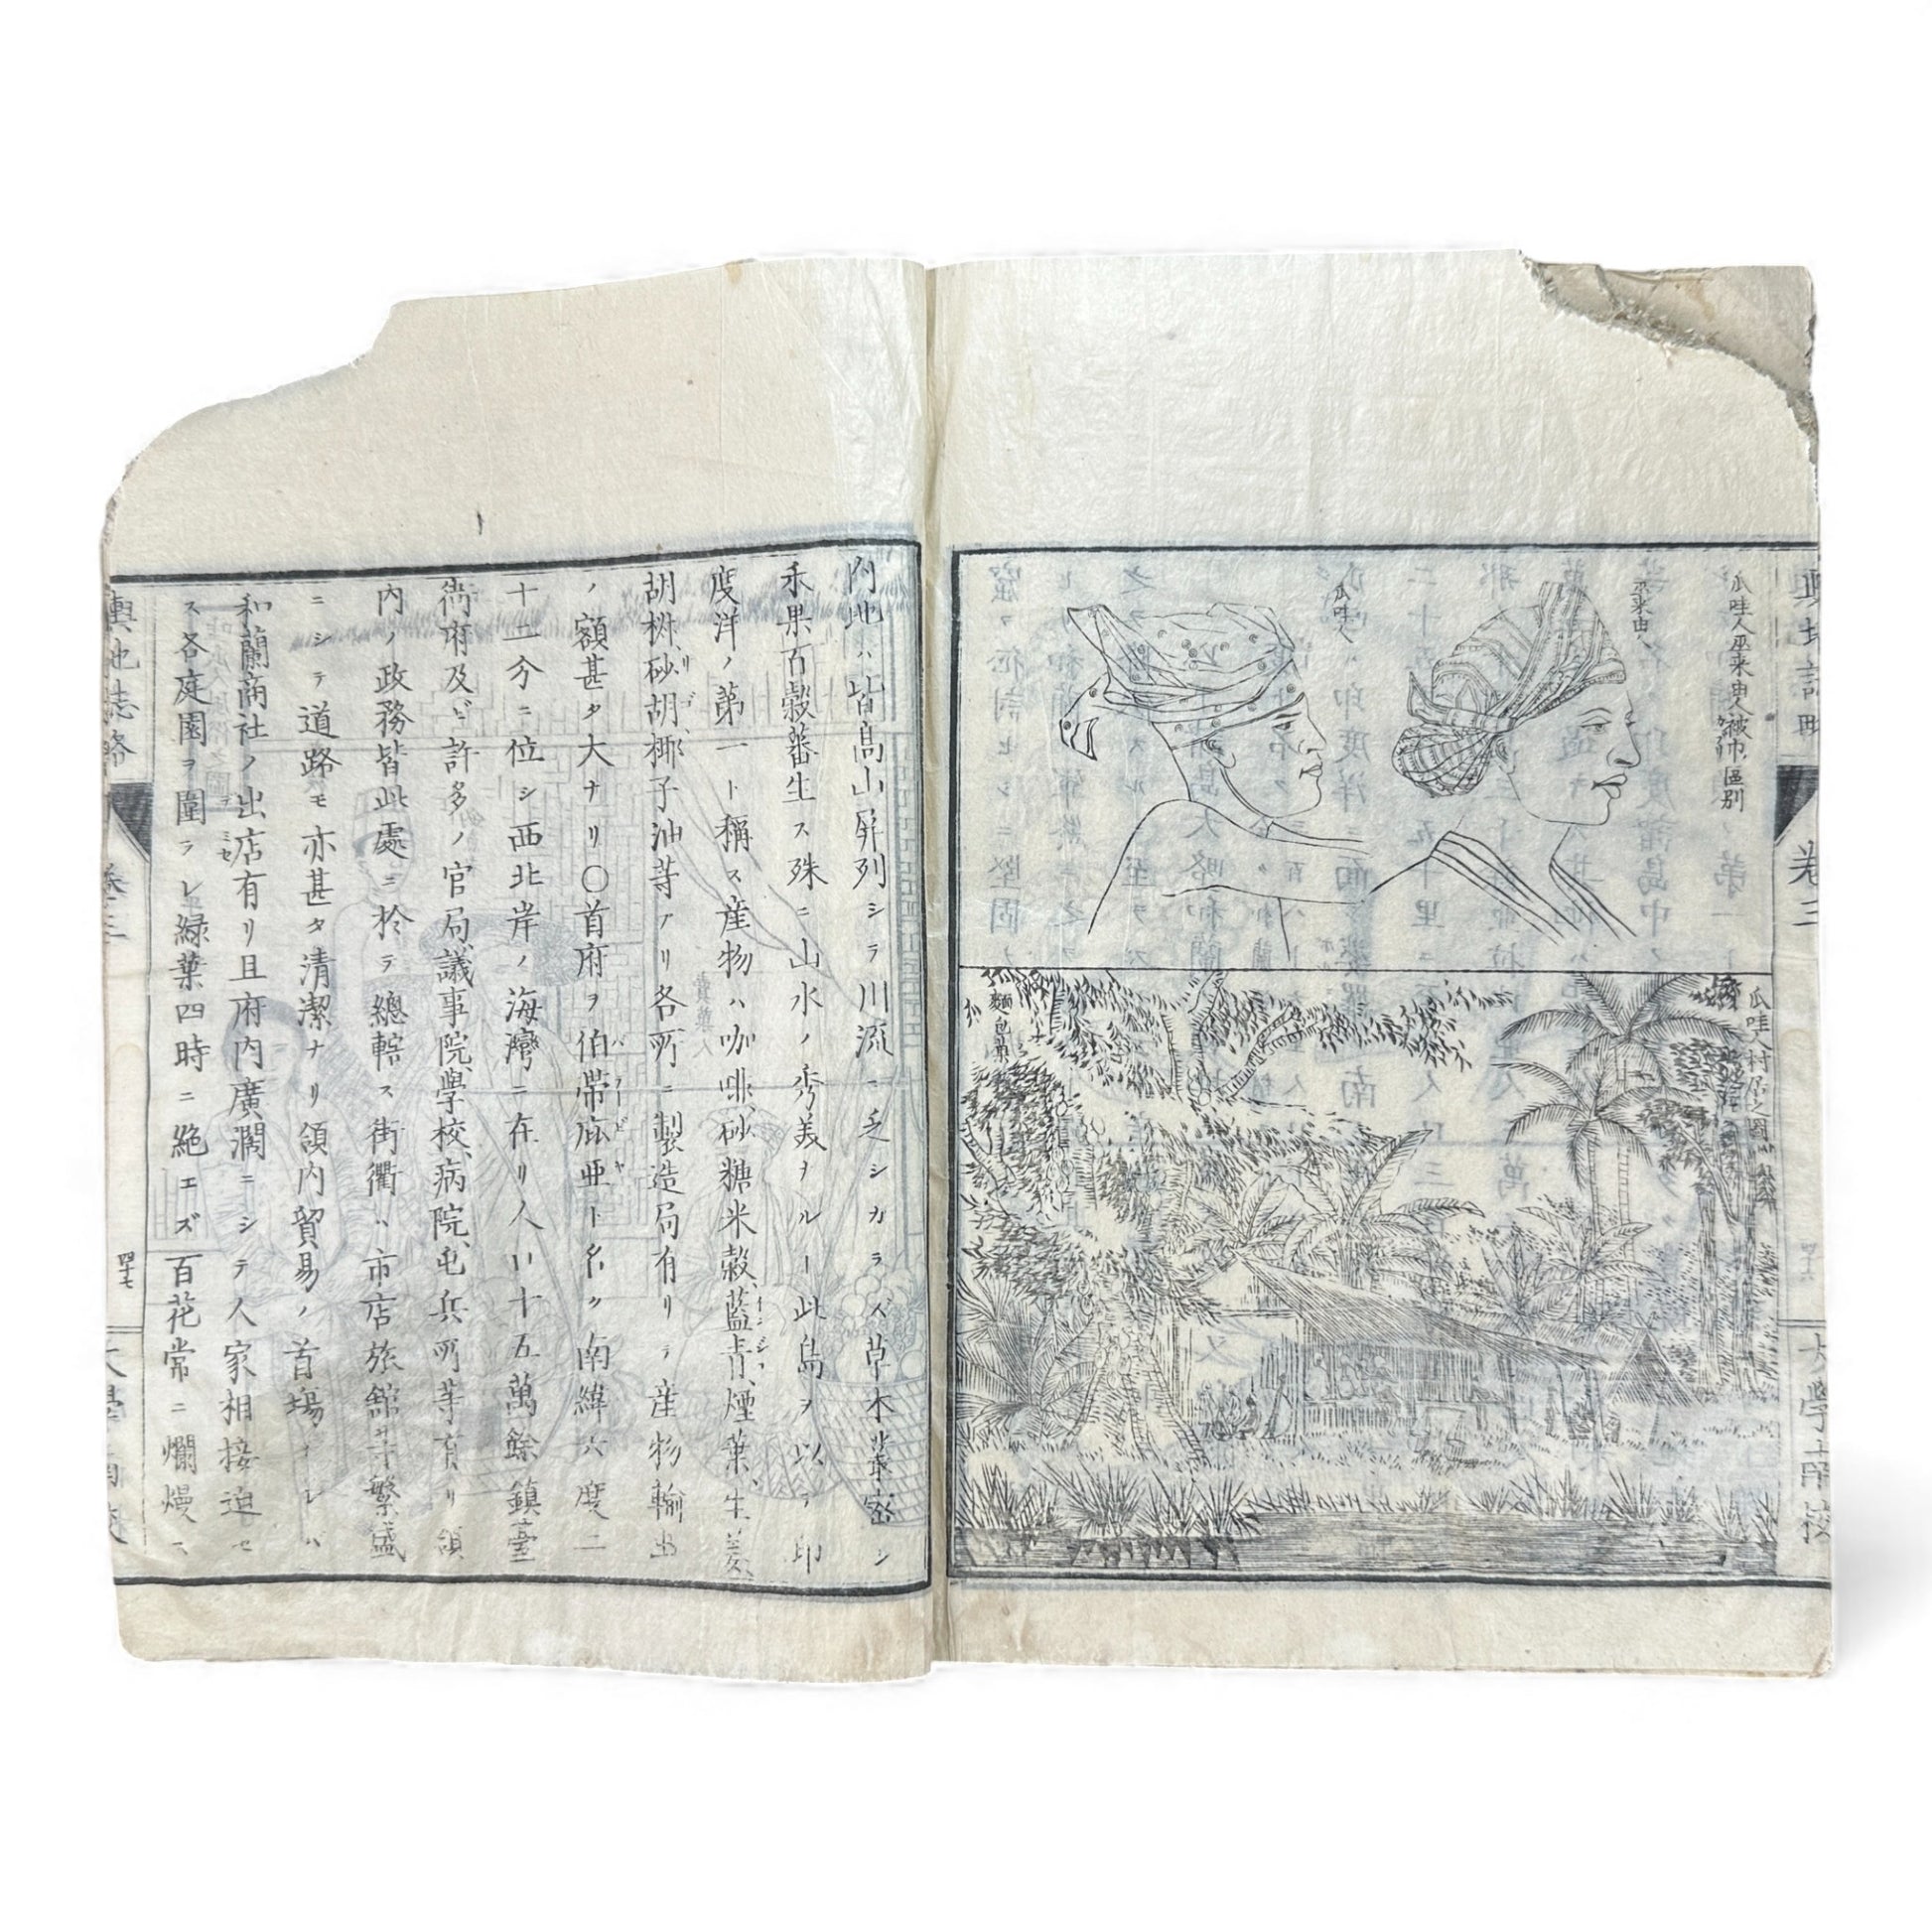 瓜哇人巫來由人被巾ノ區別
巫來由人
瓜哇人
瓜哇人村居之圖
麵包菓
卷三
大學南校
内地ハ皆高山屏列シテ川流ニ乏シカラズ草木叢密シ
禾果百穀蕃生ス殊ニ山水ノ秀美ナルヿ此島ヲ以テ印
度洋ノ第一ト稱ス産物ハ咖啡、砂糖米穀、藍青、煙葉、生姜、
胡椒砂胡椰子油等アリ各所ニ製造局有リテ産物輸出
ノ額甚タ大ナリ〇首府ヲ伯帶庇亜ト名ク南緯六度二
十二分ニ位シ西北岸ノ海灣ニ在リ人口十五萬餘鎮臺
衙府及ビ許多ノ官局議事院學校、病院、屯兵所等有リ領
内ノ政務皆此處ニ於テ總轄ス街衢ハ市店旅舘等繁盛
ニシテ道路モ亦甚タ清潔ナリ領内貿易ノ首塲ナレバ
和蘭商社ノ出店有リ且府内廣濶ニシテ人家相接迫セ
ス各庭園ヲ圍ラシ緑葉四時ニ絶エズ百花常ニ爛熳ス
輿地誌略
卷三
四十七
大學南校